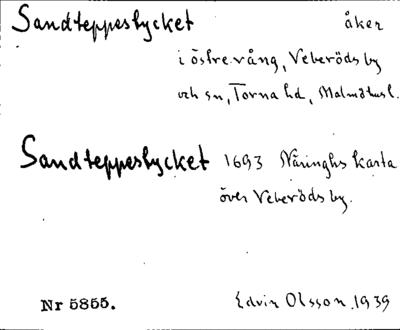 Sandteppestycket åker
i östre vång, Veberöds by
och sn, Torna hd, Malmöhus l.
Sandteppestycket 1693 Näringhs karta
över Veberöds by.
Nr 5855. Edvin Olsson 1939